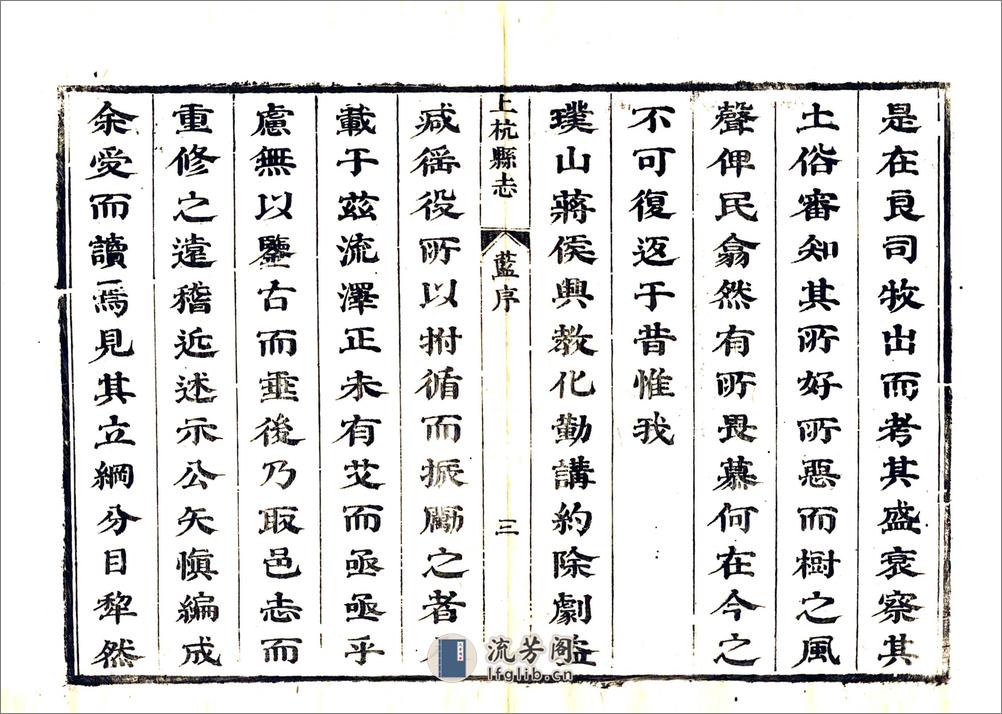 是在良司牧出而考其盛衰察其
土俗審知其所好所惡而樹之風
聲俾民翕然有所畏慕何在今之
不可復返于昔惟我
璞山蔣侯興教化勤講約除劇盜
上杭縣志
藍序
三
減徭役所以拊循而振勵之者
載于玆流澤正未有艾而亟亟乎
慮無以鑒古而垂後乃取邑志而
重修之遠稽近述示公矢慎編成
余愛而讀焉見其立綱分目犂然
流芳阁
lfglib.cn